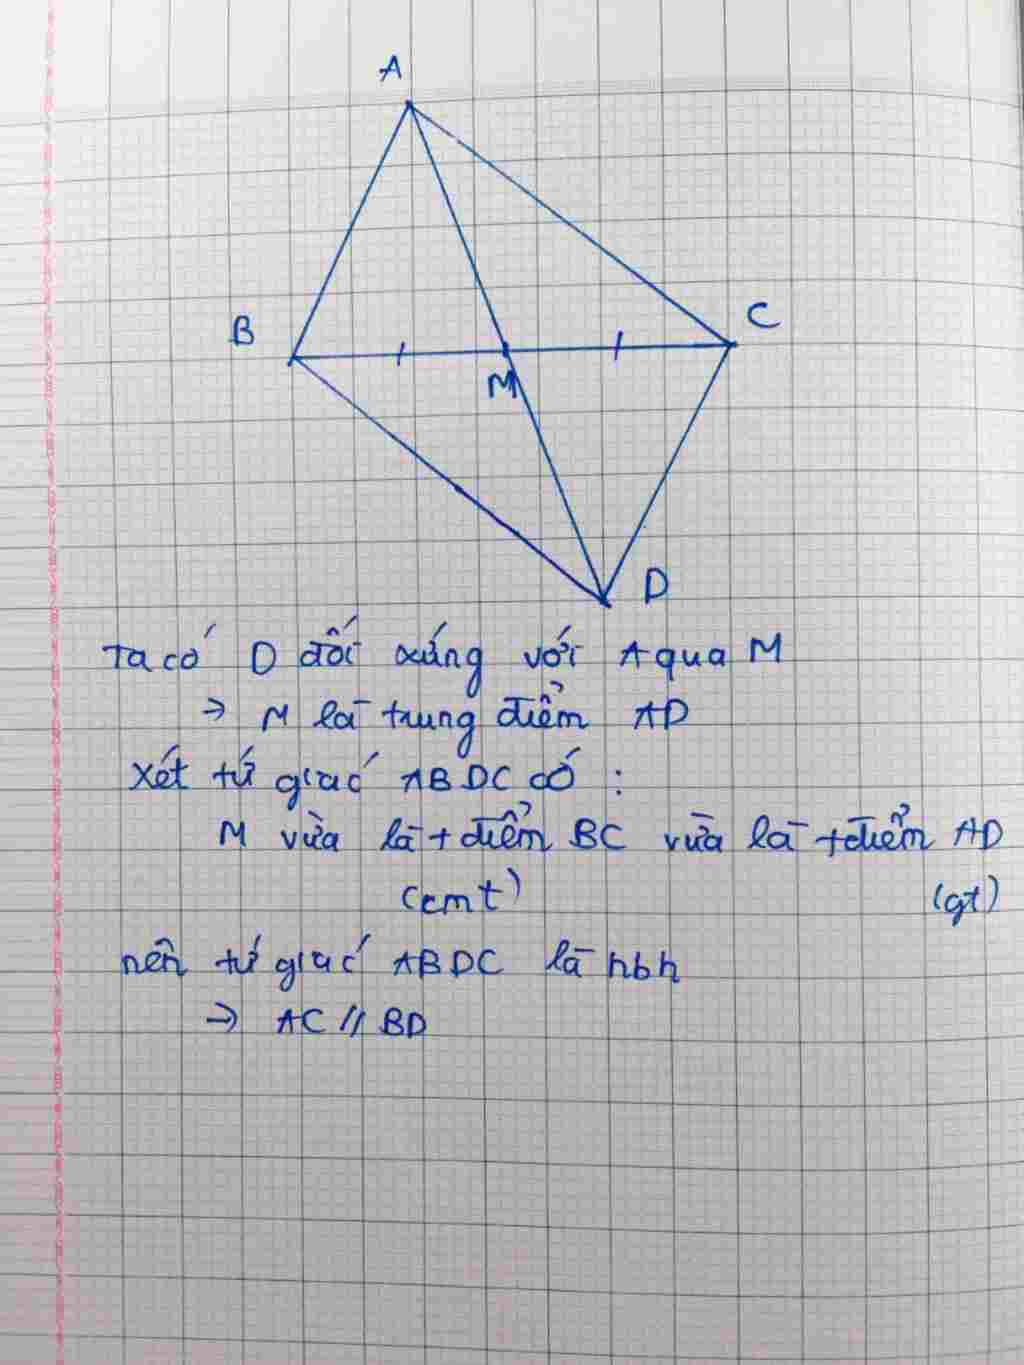 A
B
C
M
D
Ta có D đối xứng với A qua M
→ M là trung điểm AD
Xét tứ giác ABDC có :
M vừa là tđiểm BC vừa là tđiểm AD
(cmt) (gt)
nên tứ giác ABDC là hbh
→ AC // BD